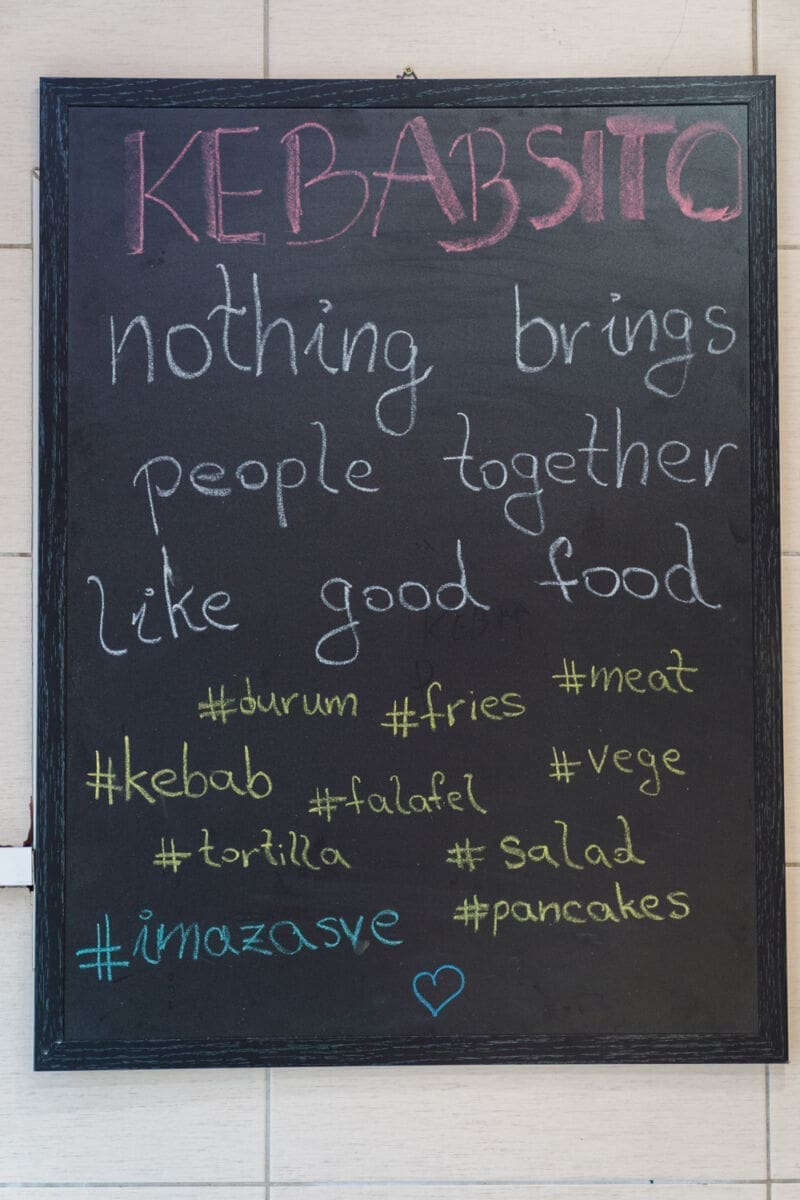 KEBABSITO
nothing brings
people together
like good food
#durum #fries #meat
#kebab #falafel #vege
#tortilla #salad
#imazasve #pancakes